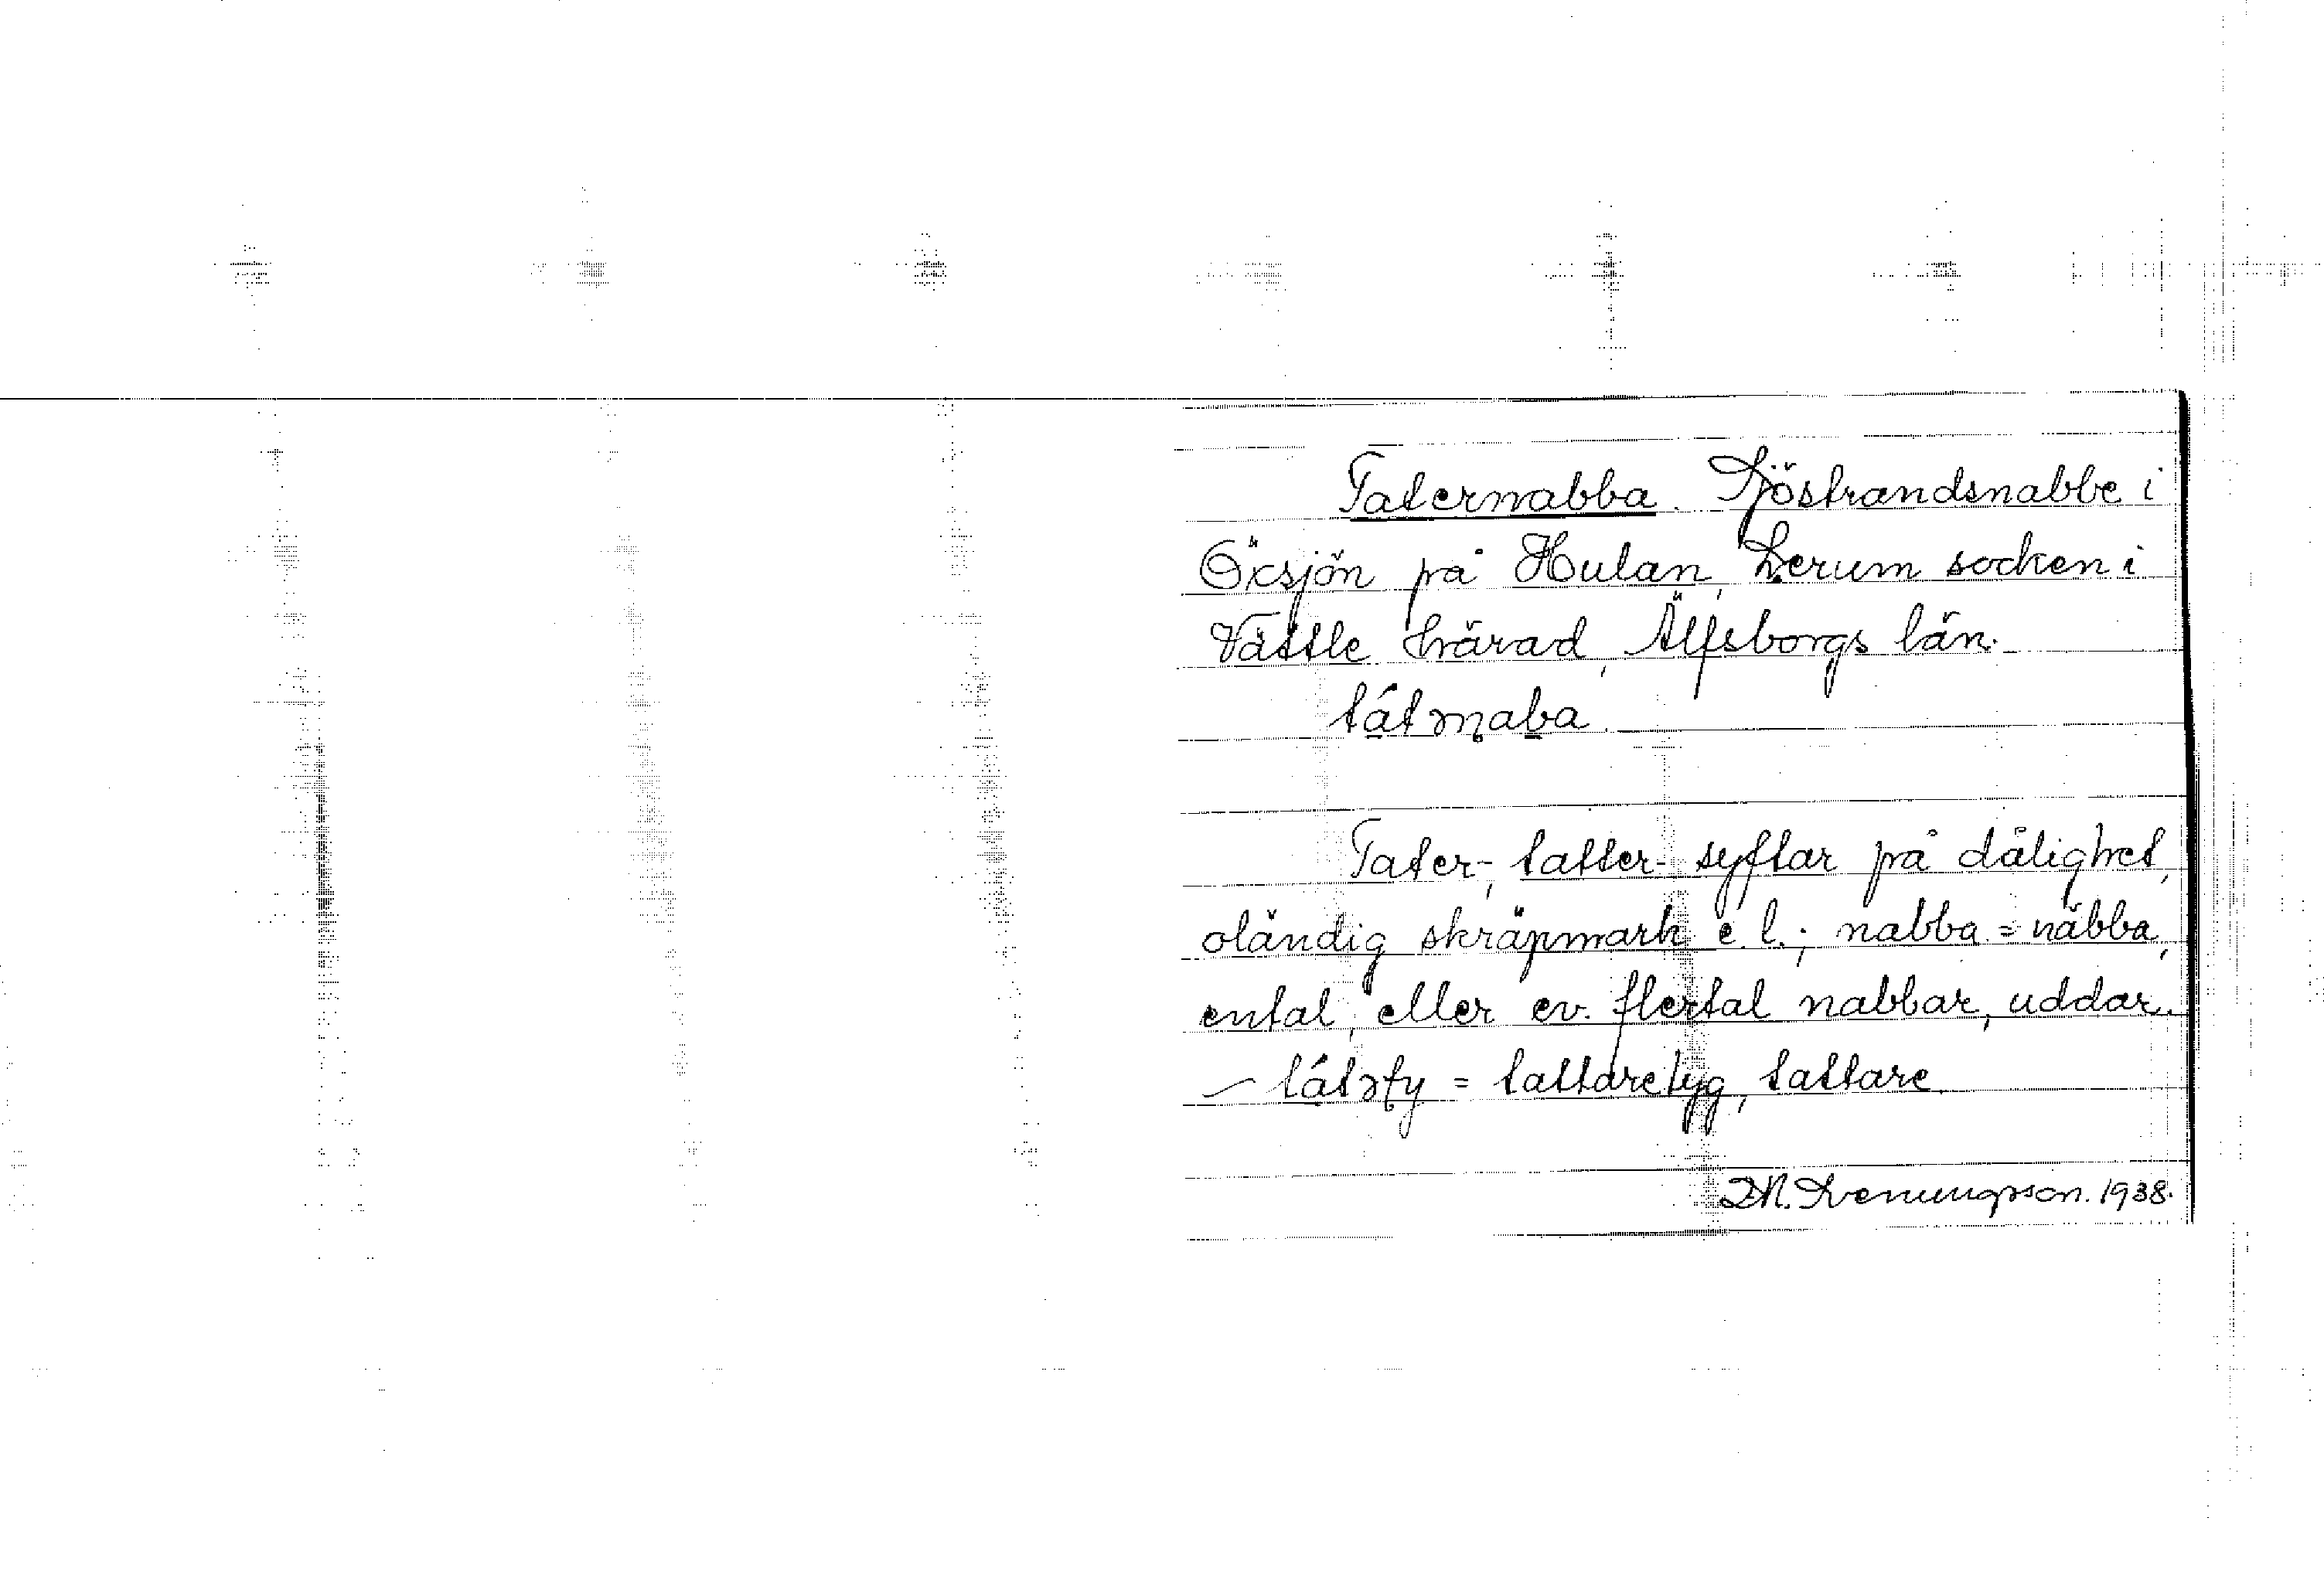 Taternabba. Sjöstrandsnabbe i
Öxsjön på Hulan, Lerum socken i
Vättle härad, Älfsborgs län.
tátɘrnaba.
Tater-, tatter- syftar på dålighet,
oländig skräpmark e. l.; nabba = näbba,
ental, eller ev. flertal nabbar, uddar.
— tátɘṣty = tattaretyg, tattare.
1938.